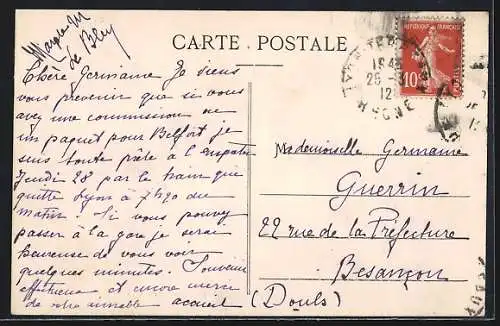 CARTE POSTALE
RÉPUBLIQUE FRANÇAISE
10
POSTES
RHONE
Chère Germaine Je viens
vous prevenir que si vous
avez une commission ou
un paquet pour Belfort je
suis toute prête à l'emporter
Jeudi 28 par le train qui
quitte Lyon à 7h20 du
matin. Si vous pouvez
passer à la gare je serai
heureuse de vous voir
quelques minutes. Souvenir
affectueux et encore merci
de votre aimable accueil
Mademoiselle Germaine
Guerrin
22 rue de la Préfecture
Besançon
(Doubs)